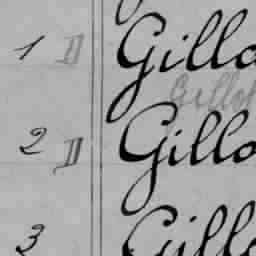 1 II Gillo
Gillot
2 II Gillo
3 Gillo